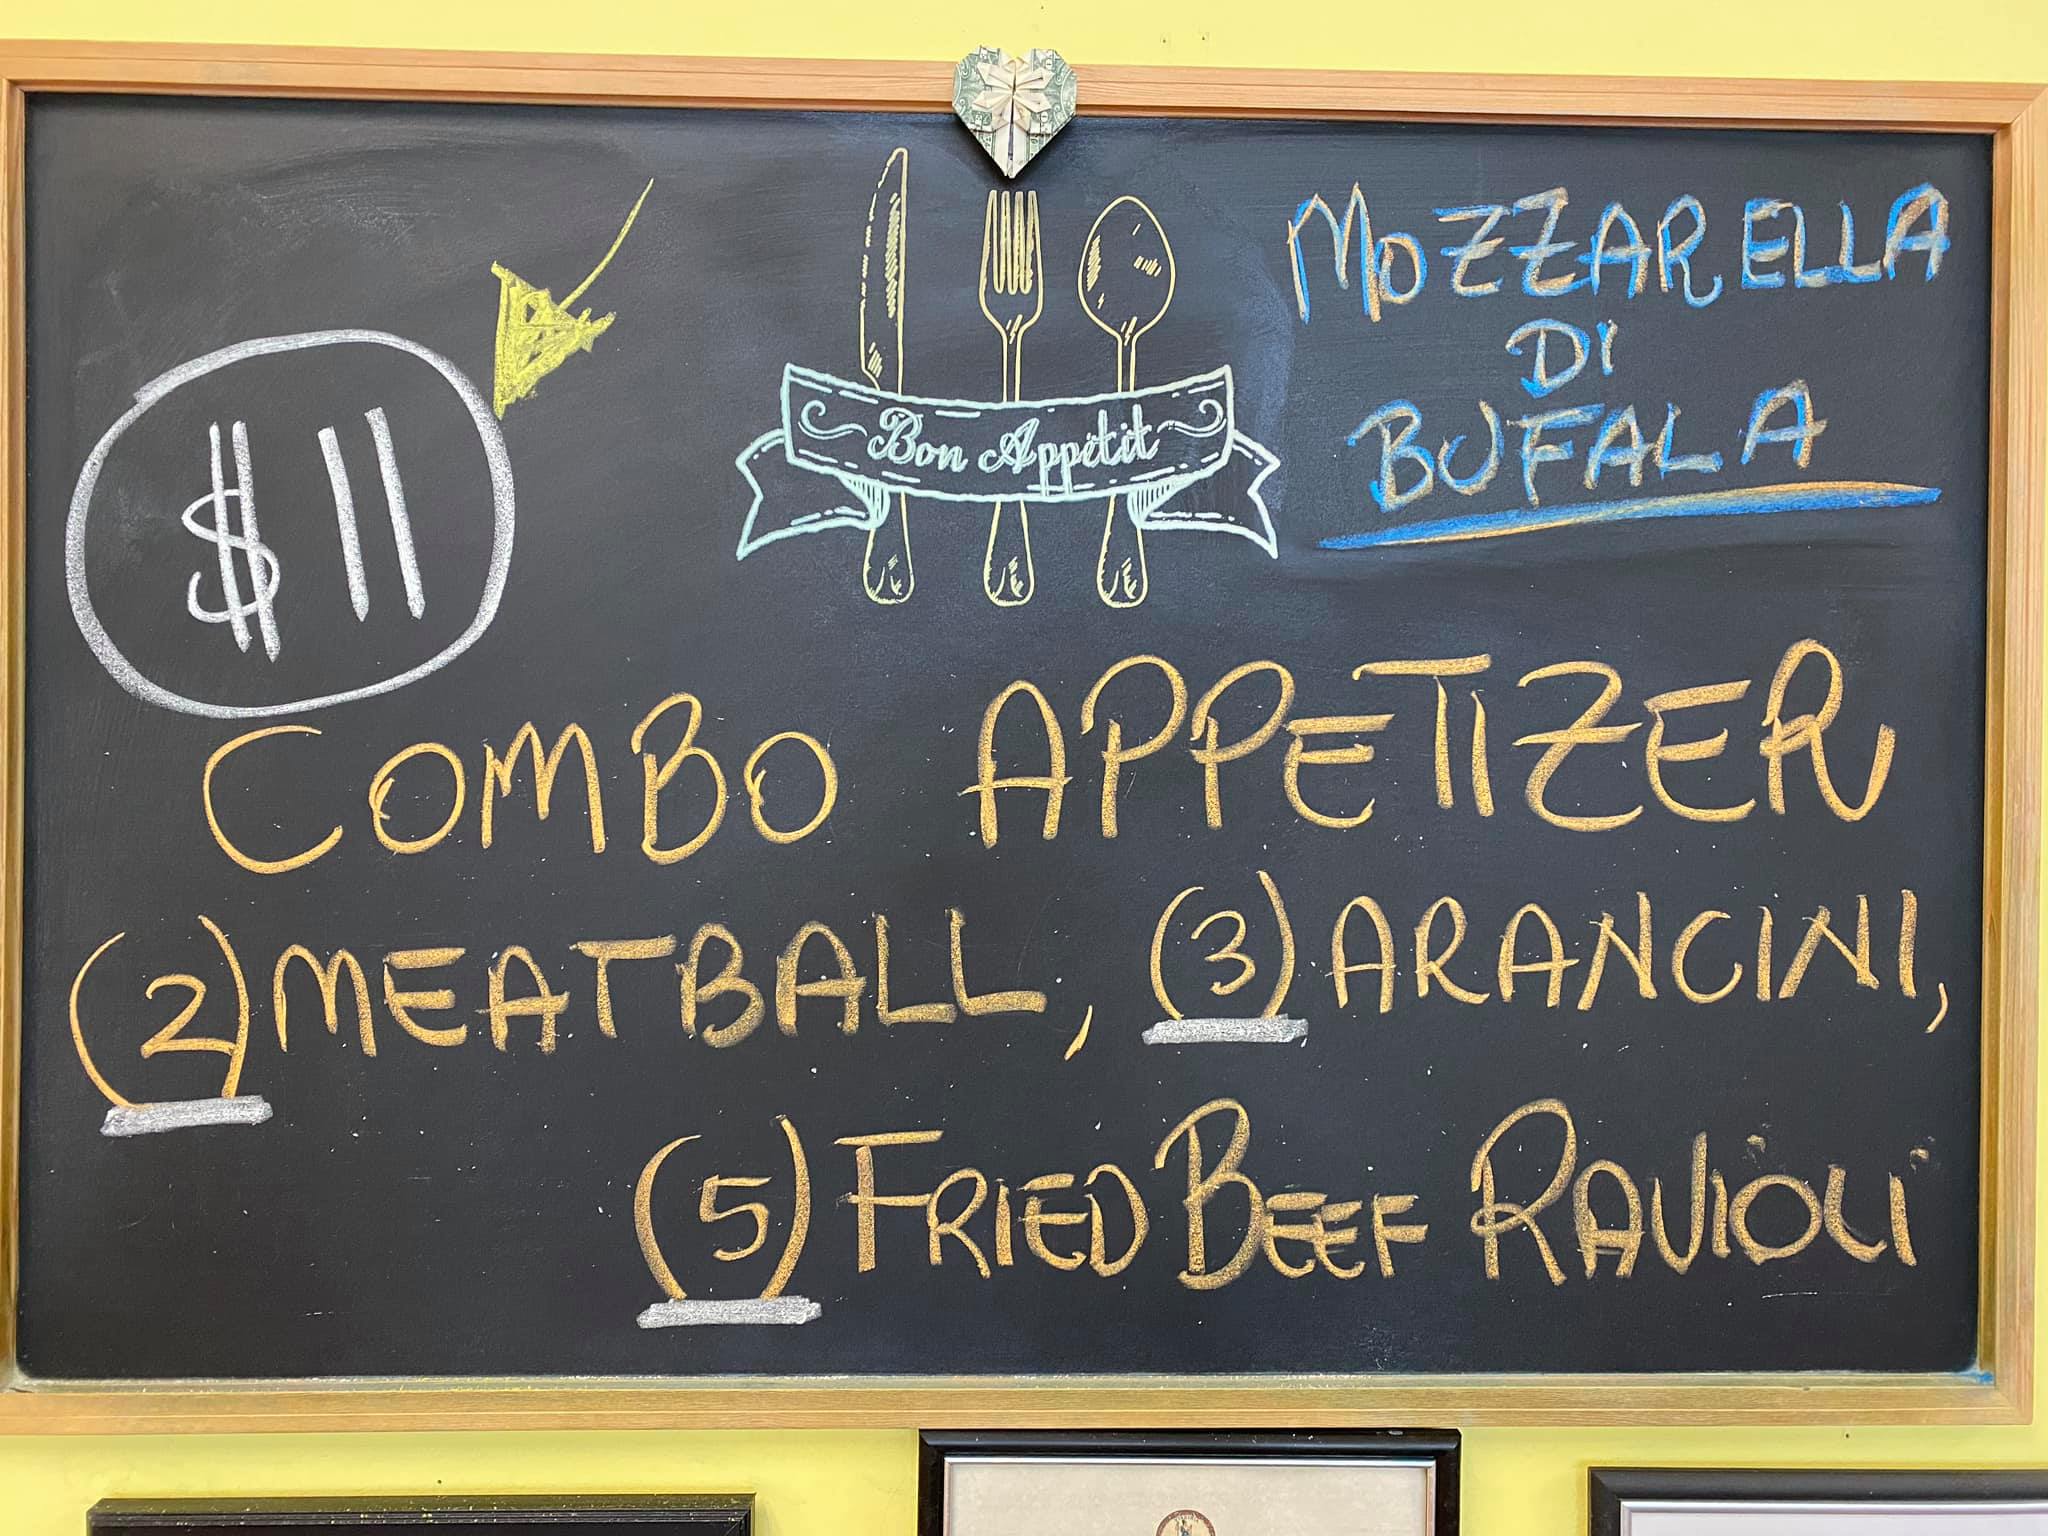 $11
Bon Appétit
MOZZARELLA
DI
BUFALA
COMBO APPETIZER
(2) MEATBALL, (3) ARANCINI,
(5) FRIED BEEF RAVIOLI